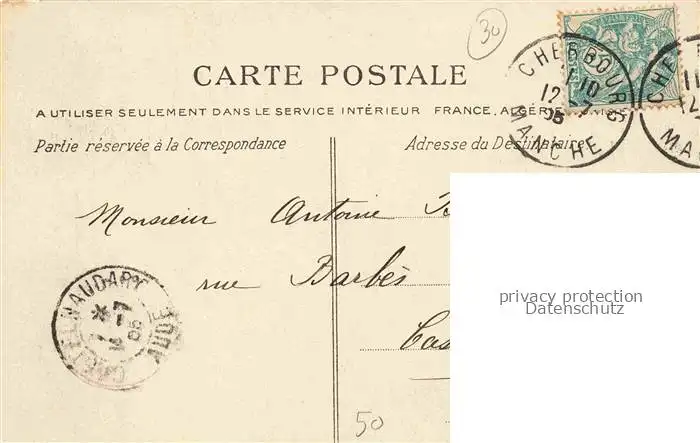 30
CARTE POSTALE
A UTILISER SEULEMENT DANS LE SERVICE INTÉRIEUR FRANCE, ALGÉRIE
Partie réservée à la Correspondance
Adresse du Destinataire
CHERBOURG
11 10
12 - 7
05
MANCHE
Monsieur Antoine
rue Barbès
CASTELNAUDARY
05
AUDE
privacy protection
Datenschutz
50